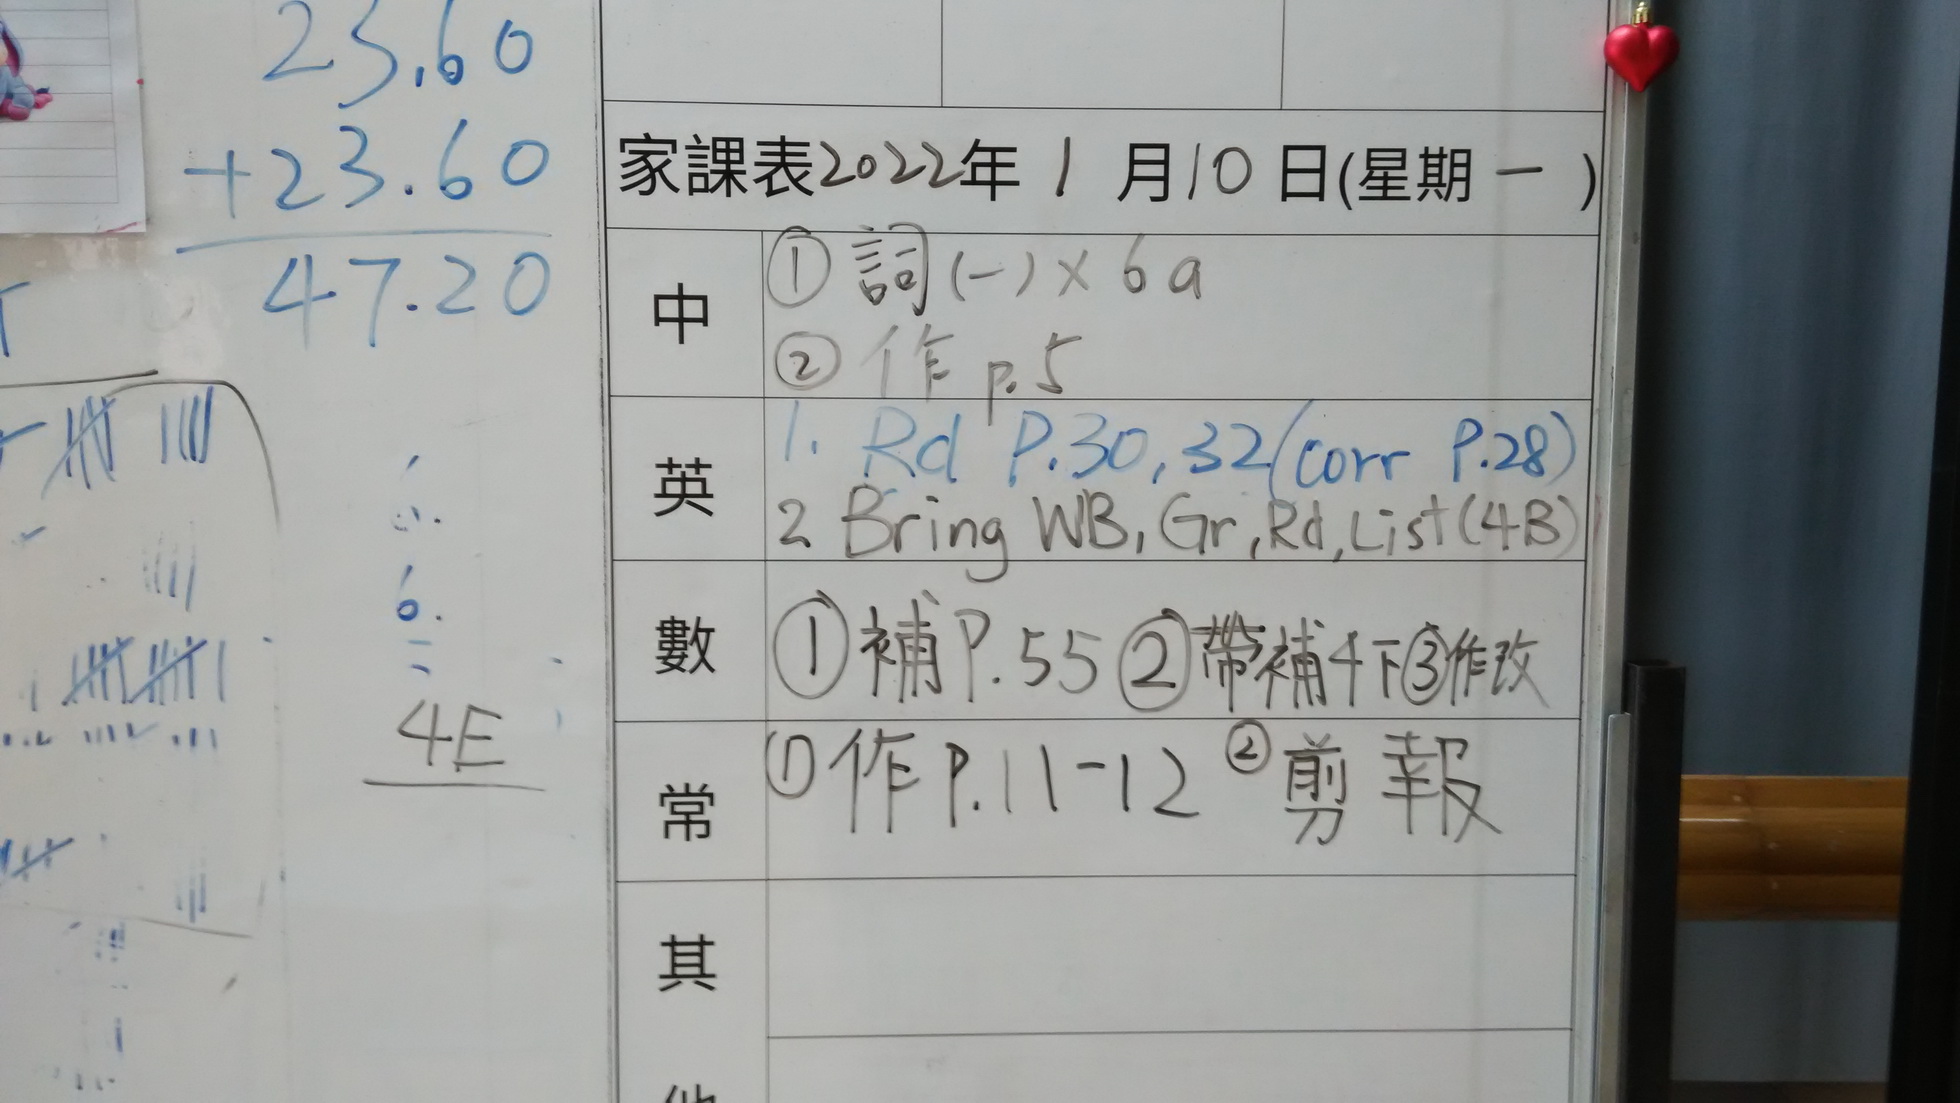 23.60
+23.60
47.20
6.
4E
家課表2022年1月10日(星期一)
中
①詞(一)×6a
②作p.5
英
1. Rd P.30,32(corr P.28)
2 Bring WB, Gr, Rd, List(4B)
數
①補P.55②帶補4下③作改
常
①作P.11-12②剪報
其